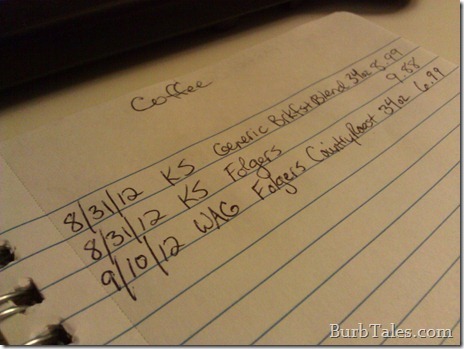 Coffee
8/31/12 KS Generic BrkfstBlend 34oz 8.99
8/31/12 KS Folgers 9.88
9/10/12 WAG Folgers CountryRoast 34oz 6.99
BurbTales.com